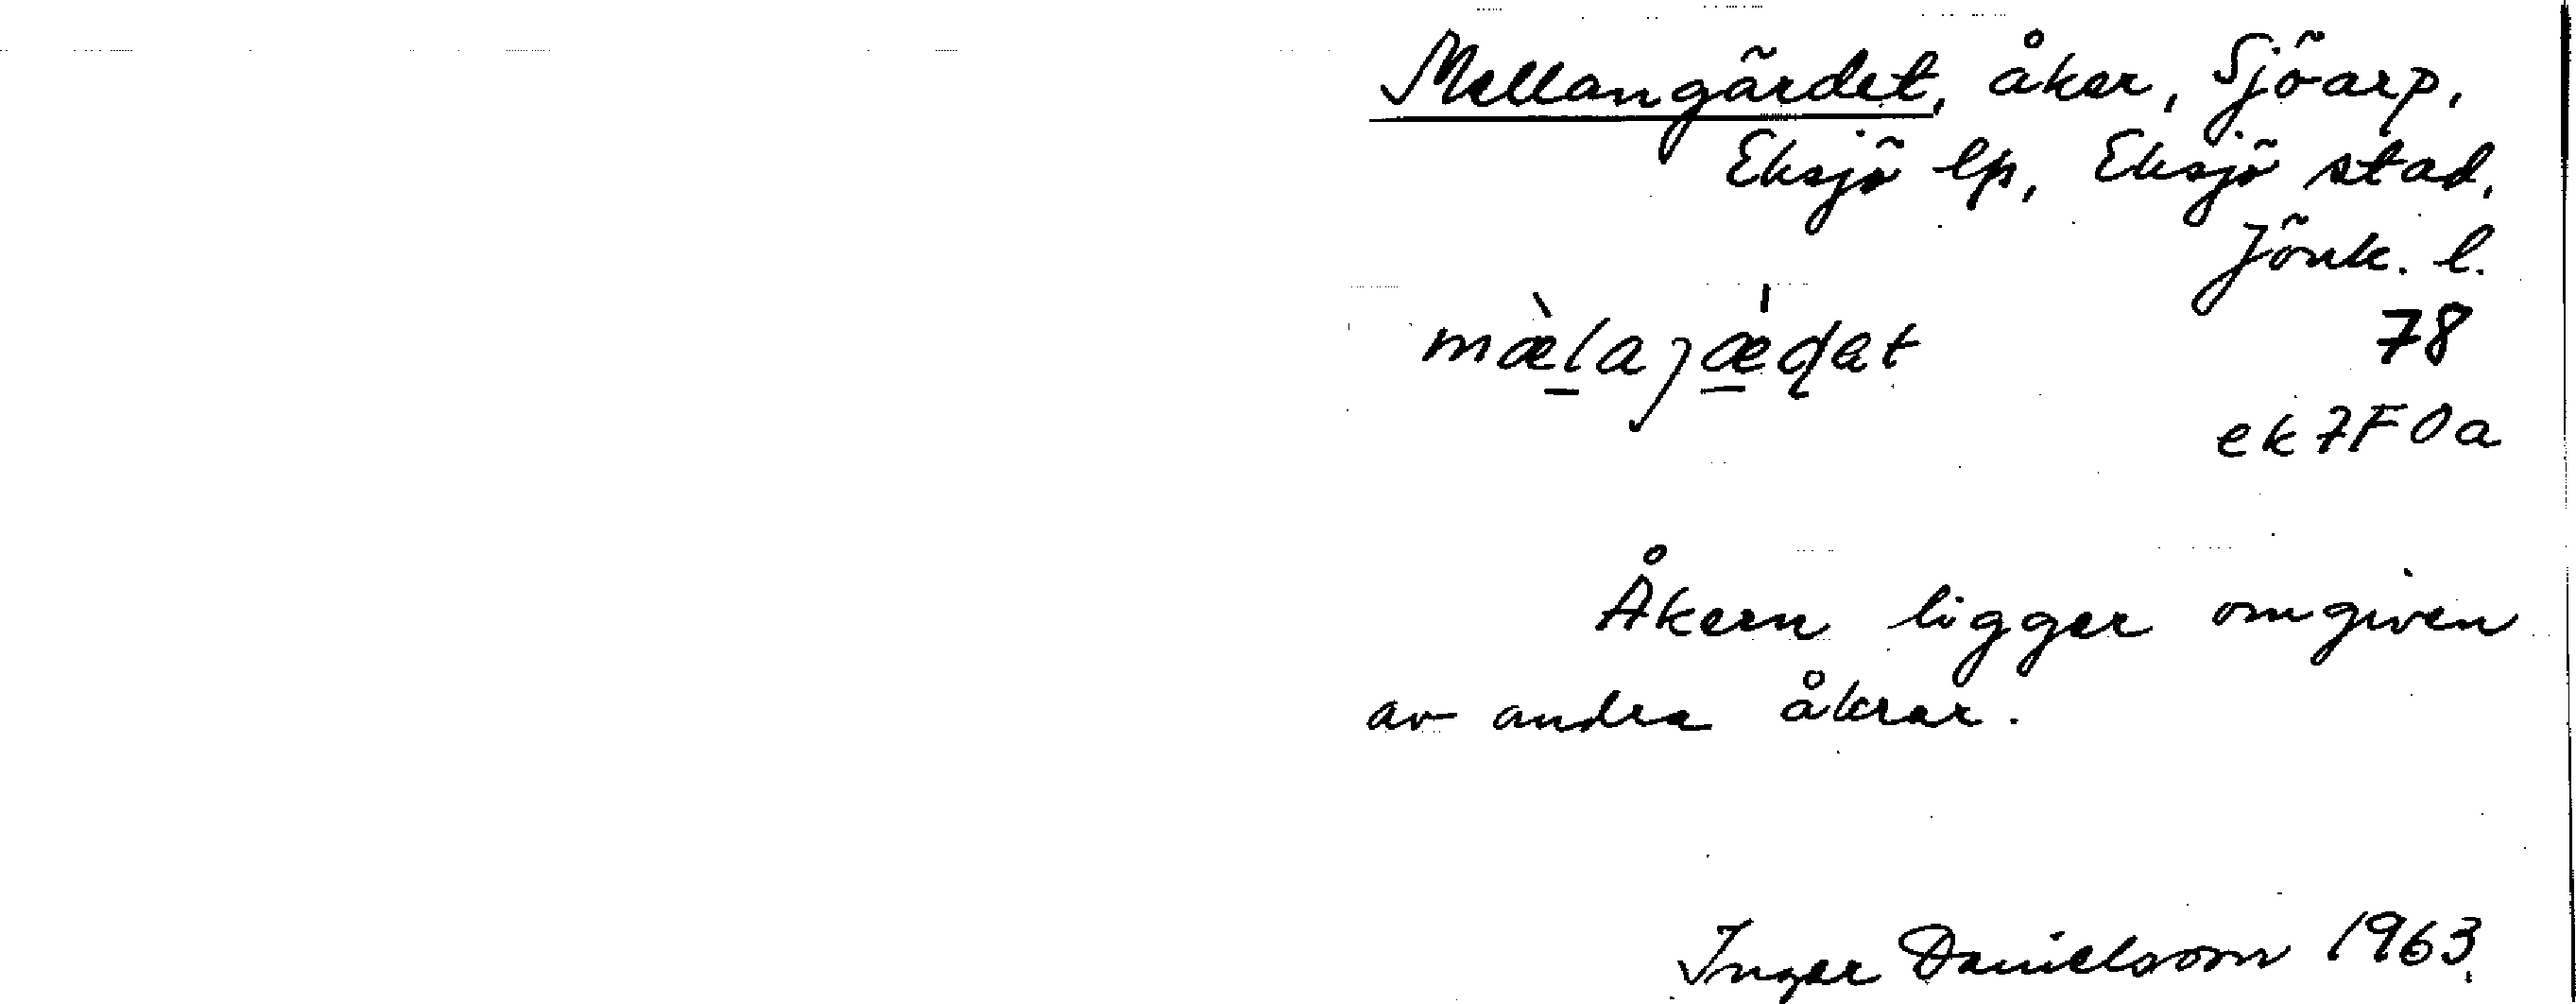 Mellangärdet, åker, Sjöarp,
Eksjö lp, Eksjö stad,
Jönk. l.
mæ̀laȷæ̍ɖat 78
ek 7F0a
Åkern ligger omgiven
av andra åkrar.
Inger Danielsson 1963.